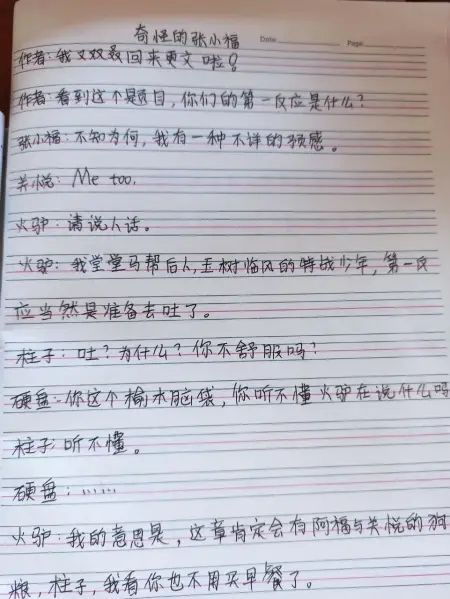 奇怪的张小福
Date
Page
作者:我又双叒回来更文啦!
作者:看到这个题目,你们的第一反应是什么?
张小福:不知为何,我有一种不详的预感。
关悦:Me too.
火驴:请说人话。
火驴:我堂堂马帮后人,玉树临风的特战少年,第一反
应当然是准备去吐了。
柱子:吐?为什么?你不舒服吗?
硬盘:你这个榆木脑袋,你听不懂火驴在说什么吗
柱子:听不懂。
硬盘:……
火驴:我的意思是,这章肯定会有阿福与关悦的狗
粮,柱子,我看你也不用买早餐了。